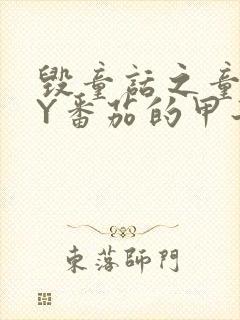 毁童话之童
Y番茄的甲
東落師門